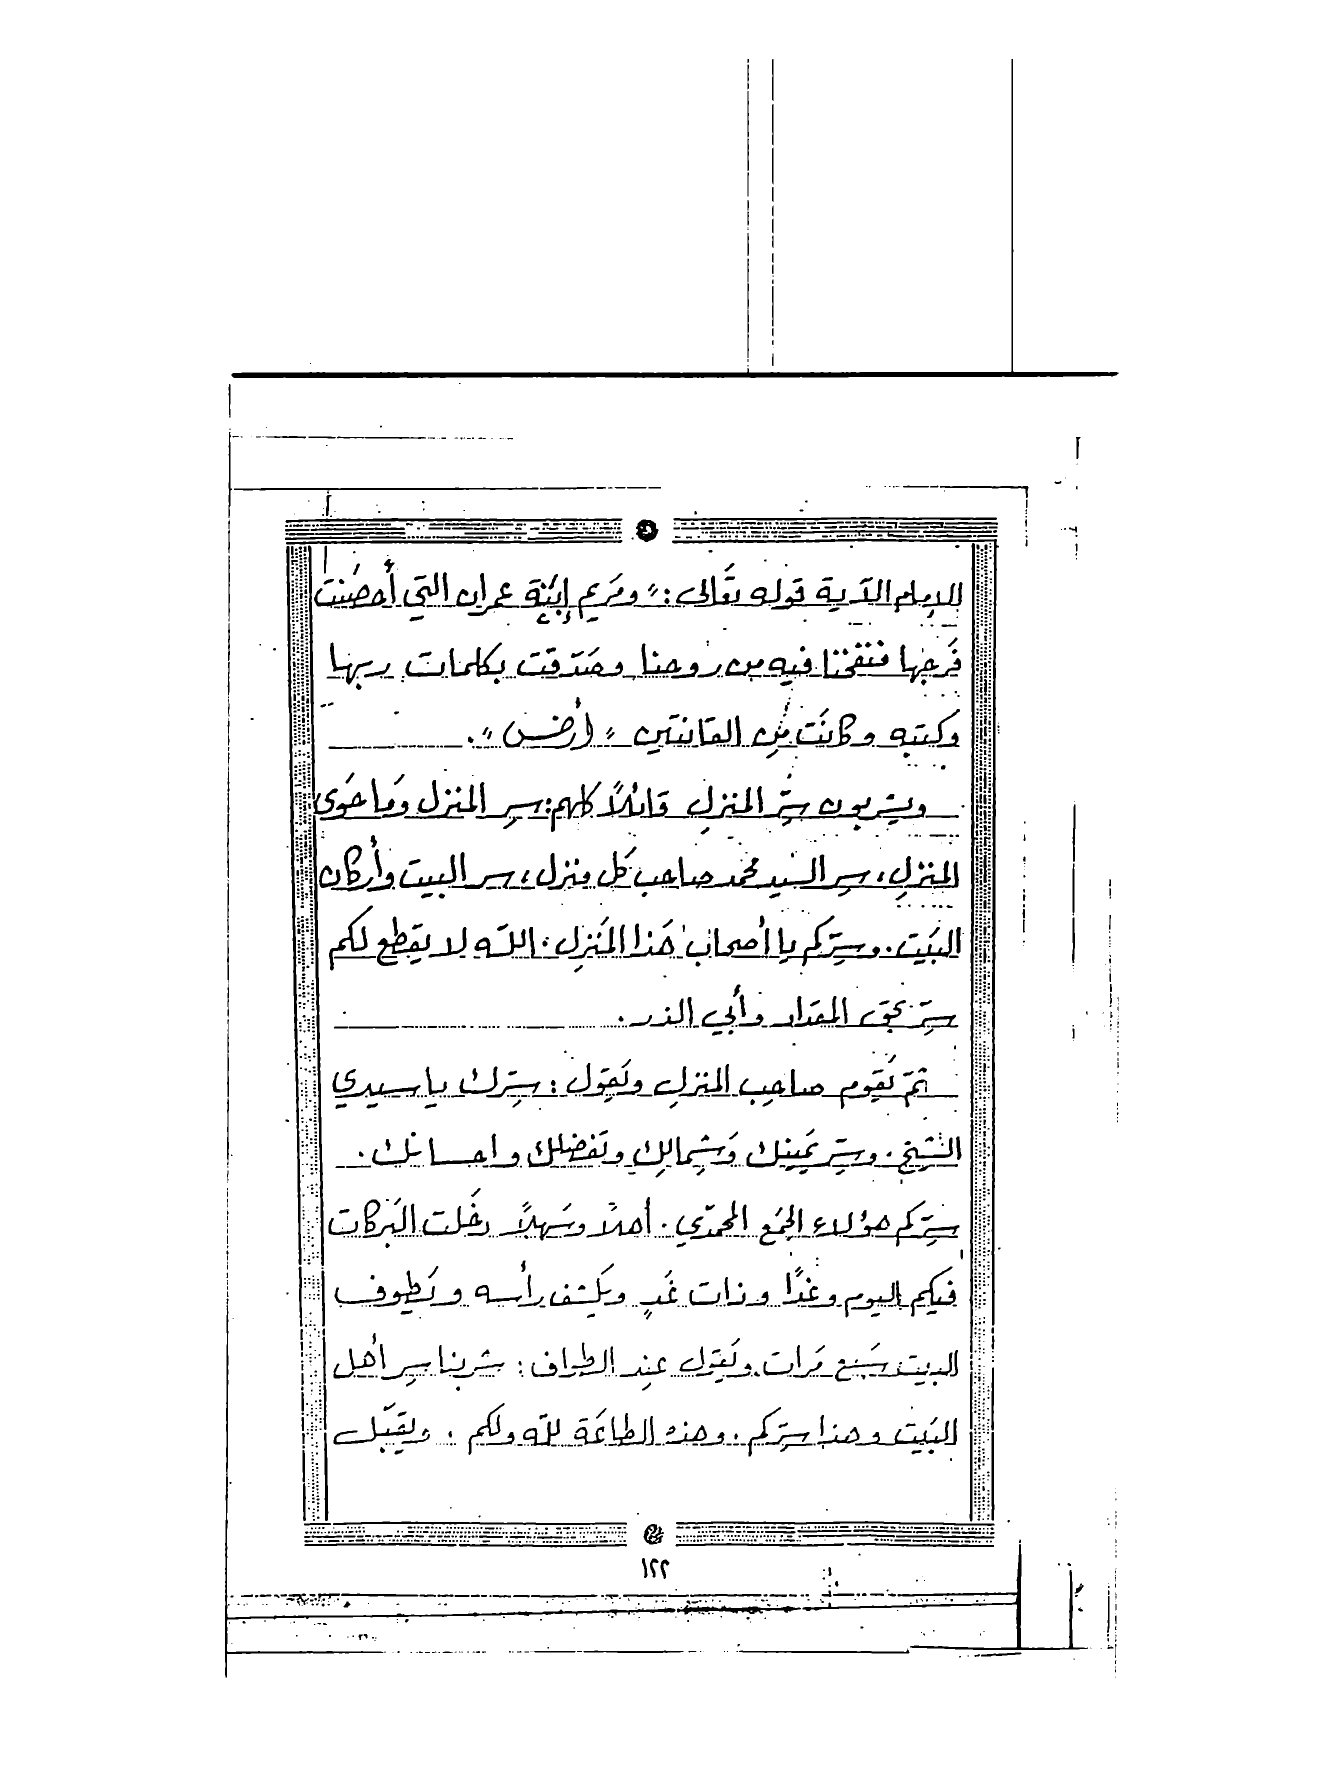 الإمام الآية قوله تعَالى: "ومَريم إبنَة عمران التي أحصَنت
فَرجها فنفخنا فيه من روحنا وصَدقت بكلمات ربها
وكتبه وكانَت مِن القانتَين" (أرض)".
ويشربون سِرّ المنزل قائلاً كلهم: سِر المنزل ومَا حَوى
المنزل، سِر السَيد محمد صاحب كَل منزل، سر البيت وأركان
البَيت. وسِرّكم يا أصحاب هَذا المَنزل. اللّه لا يقطع لكم
سِرّ بحق المقداد وأبي الذر.
ثمّ يَقوم صاحِب المنزل ويَقول: سِرّك يا سيدي
الشيخ. وسِرّ يَمينك وَشِمالك وتَفضلك واحسانك.
سِرّكم هؤلاء الجَمع المحمدّي. أهلاً وسَهلاً دخَلت البَركات
فيكم اليوم وغدًا وذات غَدٍ ويَكشف رأسه ويَطوف
البيت سَبع مَرات. ويَقول عنِد الطواف: شربنا سِر أهل
البَيت وهذا سِرّكم. وهذه الطاعَة للّه ولكم. ويقَبّل
١٢٢